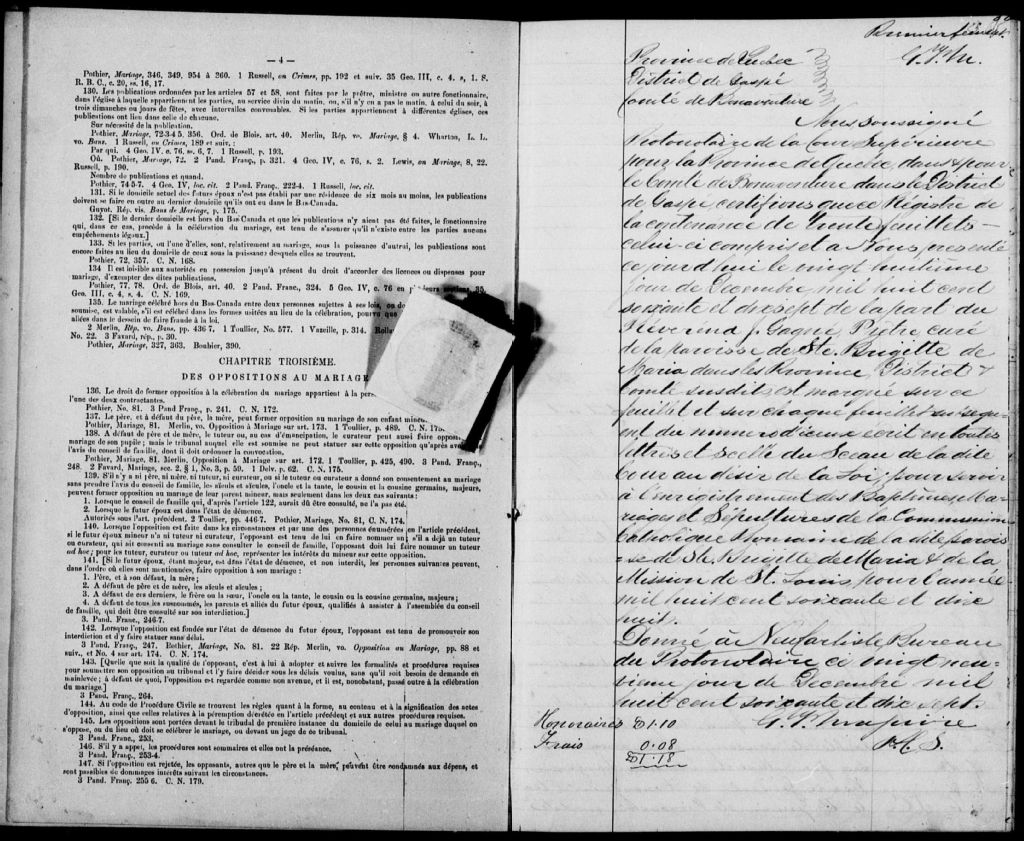 — 4 —
Pothier, Mariage, 346, 349, 954 à 260. 1 Russell, on Crimes, pp. 192 et suiv. 35 Geo. III, c. 4, s, 1. S.
R. B. C., c. 20, ss. 16, 17.
130. Les publications ordonnées par les articles 57 et 58, sont faites par le prêtre, ministre ou autre fonctionnaire,
dans l'église à laquelle appartiennent les parties, au service divin du matin, ou, s'il n'y en a pas le matin, à celui du soir, à
trois dimanches ou jours de fêtes, avec intervalles convenables. Si les parties appartiennent à différentes églises, ces
publications ont lieu dans celle de chacune.
Sur nécessité de la publication.
Pothier, Mariage, 72-3-4 5, 356. Ord. de Blois, art. 40. Merlin, Rép. vo. Mariage, § 4. Wharton, L. L.
vo. Bans. 1 Russell, on Crimes, 189 et suiv, :
Par qui. 4 Geo. IV, c. 76, ss. 6, 7. 1 Russell, p. 193.
Où. Pothier, Mariage, 72. 2 Pand. Franç., p. 321. 4 Geo. IV, c. 76, s. 2. Lewis, on Mariage, 8, 22.
Russell, p. 190.
Nombre de publications et quand.
Pothier, 74-5-7. 4 Geo. IV, loc. cit. 2 Pand. Franç., 222-4. 1 Russell, loc. cit.
131. Si le domicile actuel des futurs époux n'est pas établi par une résidence de six mois au moins, les publications
doivent se faire en outre au dernier domicile qu'ils ont eu dans le Bas-Canada.
Guyot. Rép. vis. Bans de Mariage, p. 175.
132. [Si le dernier domicile est hors du Bas-Canada et que les publications n'y aient pas été faites, le fonctionnaire
qui, dans ce cas, procède à la célébration du mariage, est tenu de s'assurer qu'il n'existe entre les parties aucuns
empêchements légaux.]
133. Si les parties, ou l'une d'elles, sont, relativement au mariage, sous la puissance d'autrui, les publications sont
encore faites au lieu du domicile de ceux sous la puissance desquels elles se trouvent.
Pothier, 72, 357. C. N. 168.
134 Il est loisible aux autorités en possession jusqu'à présent du droit d'accorder des licences ou dispenses pour
mariage, d'exempter des dites publications.
Pothier, 77, 78. Ord. de Blois, art. 40. 2 Pand. Franç., 324. 5 Geo. IV, c. 76 en plusieurs sections. 35
Geo. III, c. 4, s. 4. C. N. 169.
135. Le mariage célébré hors du Bas-Canada entre deux personnes sujettes à ses lois, ou do
soumise, est valable, s'il est célébré dans les formes usitées au lieu de la célébration, pourvu que
allées dans le dessein de faire fraude à la loi.
2 Merlin, Rép. vo. Bans, pp. 436-7. 1 Toullier, No. 577. 1 Vazeille, p. 314. Rolla
No. 22. 3 Favard, rép., p. 30.
Pothier, Mariage, 327, 363. Bouhier, 390.
CHAPITRE TROISIÈME.
DES OPPOSITIONS AU MARIAGE
136. Le droit de former opposition à la célébration du mariage appartient à la pers
l'une des deux contractantes.
Pothier, No. 81. 3 Pand Franç., p. 241. C. N. 172.
137. Le père, et à défaut du père, la mère, peut former opposition au mariage de son enfant mineu
Pothier, Mariage, 81. Merlin, vo. Opposition à Mariage sur art. 173. 1 Toullier, p. 489. C. N. 173.
138. A défaut de père et de mère, le tuteur ou, au cas d'émancipation, le curateur peut aussi faire opposi
mariage de son pupile; mais le tribunal auquel elle est soumise ne peut statuer sur cette opposition qu'après avoi
l'avis du conseil de famille, dont il doit ordonner la convocation.
Pothier, Mariage, 81. Merlin, Opposition à Mariage sur art. 172. 1 Toullier, p. 425, 490. 3 Pand. Franç.,
248. 2 Favard, Mariage, sec. 2, § 1, No. 3, p. 59. 1 Delv. p. 62. C. N. 175.
139. S'il n'y a ni père, ni mère, ni tuteur, ni curateur, ou si le tuteur ou curateur a donné son consentement au mariage
sans prendre l'avis du conseil de famille, les aïeuls et aïeules, l'oncle et la tante, le cousin et la cousine germains, majeurs,
peuvent former opposition au mariage de leur parent mineur, mais seulement dans les deux cas suivants:
1. Lorsque le conseil de famille qui, d'après l'article 122, aurait dû être consulté, ne l'a pas été.
2. Lorsque le futur époux est dans l'état de démence.
Autorités sous l'art. précédent. 2 Toullier, pp. 446-7. Pothier, Mariage, No. 81, C. N. 174.
140. Lorsque l'opposition est faite dans les circonstances et par une des personnes énumérées en l'article précédent,
si le futur époux mineur n'a ni tuteur ni curateur, l'opposant est tenu de lui en faire nommer un; s'il a déjà un tuteur
ou curateur, qui ait consenti au mariage sans consulter le conseil de famille, l'opposant doit lui faire nommer un tuteur
ad hoc; pour les tuteur, curateur ou tuteur ad hoc, représenter les intérêts du mineur sur cette opposition.
141. [Si le futur époux, étant majeur, est dans l'état de démence, et non interdit, les personnes suivantes peuvent,
dans l'ordre où elles sont mentionnées, faire opposition à son mariage :
1. Père, et à son défaut, la mère ;
2. A défaut de père et de mère, les aïeuls et aïeules ;
3. A défaut de ces derniers, le frère ou la sœur, l'oncle ou la tante, le cousin ou la cousine germains, majeurs;
4. A défaut de tous les susnommés, les parents et alliés du futur époux, qualifiés à assister à l'assemblée du conseil
de famille, qui doit être consulté sur son interdiction.]
3. Pand. Franç., 246-7.
142. Lorsque l'opposition est fondée sur l'état de démence du futur époux, l'opposant est tenu de promouvoir son
interdiction et d'y faire statuer sans délai.
3 Pand Franç., 247. Bothier, Mariage, No. 81. 22 Rép. Merlin, vo. Opposition au Mariage, pp. 88 et
suiv., et No. 4 sur art. 174. C. N. 174.
143. [Quelle que soit la qualité de l'opposant, c'est à lui à adopter et suivre les formalités et procédures requises
pour soumettre son opposition au tribunal et l'y faire décider sous les délais voulus, sans qu'il soit besoin de demande en
mainlevée ; à défaut de quoi, l'opposition est regardée comme non avenue, et il est, nonobstant, passé outre à la célébration
du mariage.]
3 Pand. Franç., 264.
144. Au code de Procédure Civile se trouvent les règles quant à la forme, au contenu et à la signification des actes
d'opposition, ainsi que celles relatives à la péremption décrétée en l'article précédent et aux autres procédures requises.
145. Les oppositions sont portées devant le tribunal de première instance du domicile de celui au mariage duquel on
s'oppose, ou du lieu où doit se célébrer le mariage, ou devant un juge de ce tribunal.
3 Pand. Franç., 253,
146. S'il y a appel, les procédures sont sommaires et elles ont la préséance.
3 Pand. Franç., 253-4.
147. Si l'opposition est rejetée, les opposants, autres que le père et la mère, peuvent être condamnés aux dépens, et
sont passibles de dommages intérêts suivant les circonstances.
3 Pand. Franç. 255 6. C. N. 179.
Premier feuillet.
Province de Québec
District de Gaspé
Comté de Bonaventure
Nous soussigné
Protonotaire de la Cour Supérieure
pour la Province de Québec, dans & pour
le Comté de Bonaventure dans le District
de Gaspé certifions que ce Régistre de
la contenance de Trente feuillets
celui-ci compris et a Nous présenté
ce jourd'hui le vingt huitième
jour de Décembre mil huit cent
soixante et dix sept de la part du
Révérend J. Gagné Prêtre curé
de la paroisse de Ste. Brigitte de
Maria dans les Province, District &
Comté susdits, est marqué sur ce
feuillet et sur chaque feuillet subséquent
ent du numero d'iceux écrit en toutes
lettres et scellé du Sceau de la dite
Cour au désir de la Loi, pour servir
à l'enregistrement des Baptêmes, Ma-
riages et Sépultures de la Communion
Catholique Romaine de la dite parois
se de Ste. Brigitte de Maria & de la
Mission de St. Louis pour l'année
mil huit cent soixante et dix
huit.
Donné à New Carlisle Bureau
du Protonotaire ce vingt neu-
vième jour de Decembre mil
huit cent soixante et dix sept.
Honoraires $1.10
Frais 0.08
$1.18
P.C.S.